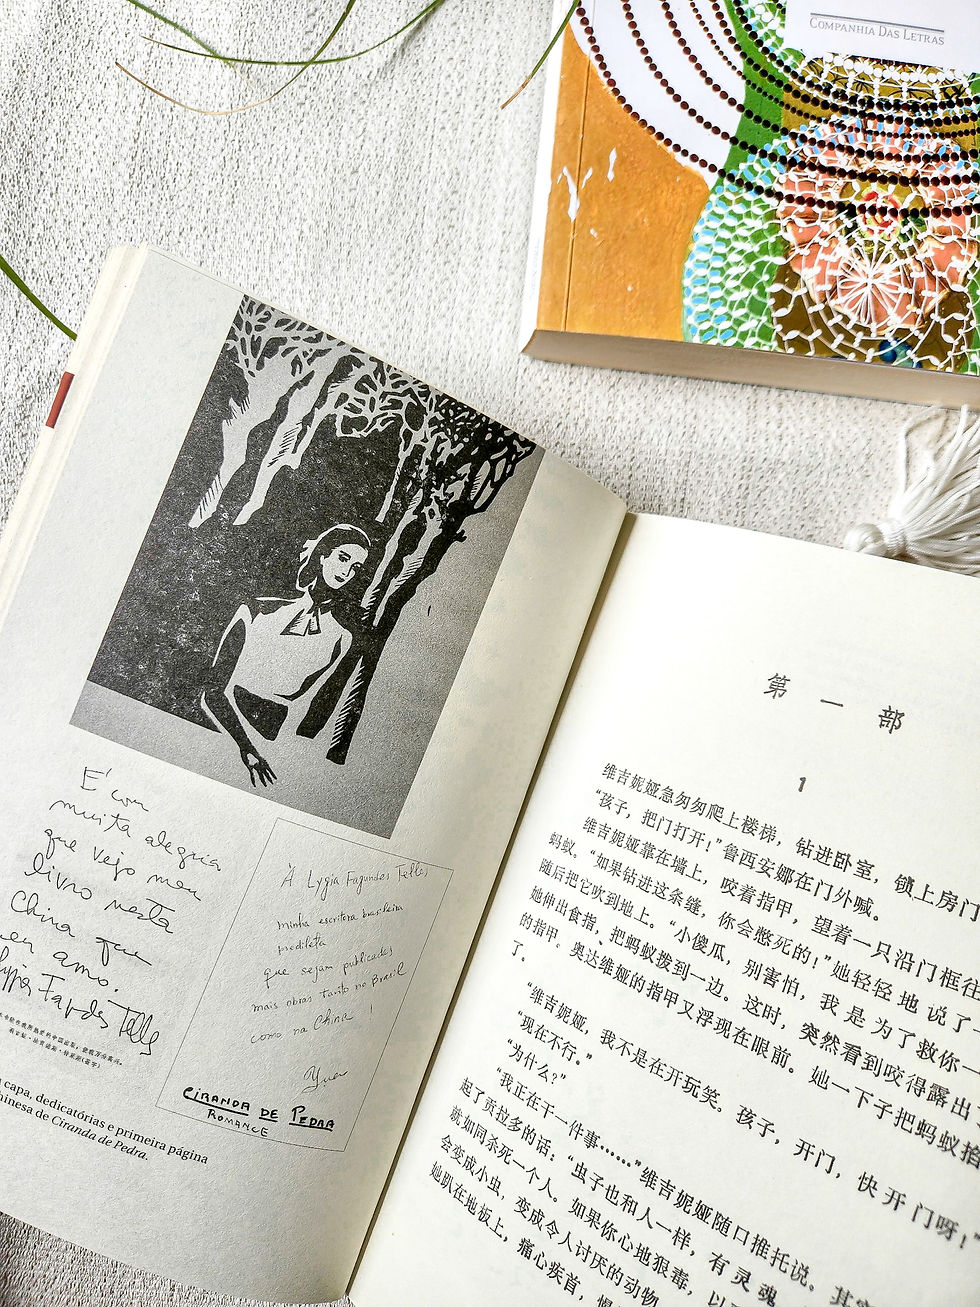 COMPANHIA DAS LETRAS
É com
muita alegria
que vejo meu
livro nesta
China que
amo.
Lygia Fagundes Telles
À Lygia Fagundes Telles
minha escritora brasileira
predileta
que sejam publicadas
mais obras tanto no Brasil
como na China!
CIRANDA DE PEDRA
ROMANCE
capa, dedicatórias e primeira página
de Ciranda de Pedra.
第一部
1
维吉妮娅急匆匆爬上楼梯，钻进卧室，锁上房门
“孩子，把门打开！”鲁西安娜在门外喊。
维吉妮娅靠在墙上，咬着指甲，望着一只沿门框往
蚂蚁。“如果钻进这条缝，你会憋死的！”她轻轻地说了
随后把它吹到地上。“小傻瓜，别害怕，我是为了救你一
她伸出食指、把蚂蚁拨到一边。这时，突然看到咬得露出
的指甲。奥达维娅的指甲又浮现在眼前。她一下子把蚂蚁掐
了。
“维吉妮娅，我不是在开玩笑。孩子，开门，快开门呀！”
“现在不行。”
“为什么？”
“我正在干一件事……”维吉妮娅随口推托说。其
起了贡拉多的话：“虫子也和人一样，有灵魂
就如同杀死一个人。如果你心地狠毒，以
会变成小虫，变成令人讨厌的动物
她趴在地板上，痛心疾首，